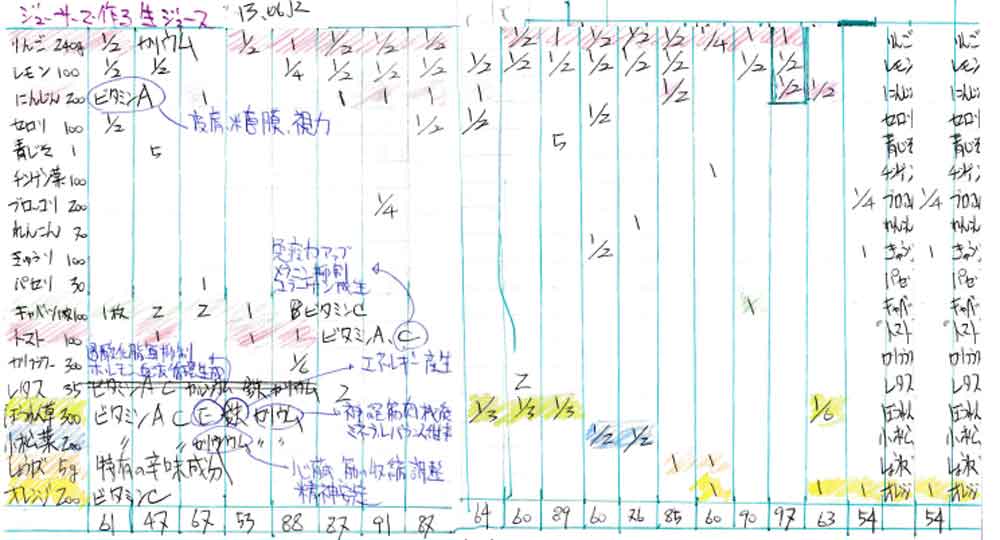 ジューサーで作る生ジュース 13.06.12
りんご 240g 1/2 カリウム 1/2 1 1/2 1/2 1/2 1 1/2 1/2 1/2 1/4 1 1 りんご りんご
レモン 100 1/2 1/2 1/4 1/2 1/2 1/2 1/2 1/2 1/2 1/2 1/2 1/2 1/2 1/2 レモン レモン
にんじん 200 ビタミンA 1 1 1 1 1 1/2 1/2 1/2 にんじん にんじん
皮膚、粘膜、視力
セロリ 100 1/2 1/2 1/2 1/2 セロリ セロリ
青じそ 1 5 5 青じそ 青じそ
チンゲン菜 100 1 チンゲン チンゲン
ブロッコリ 200 1/4 1/4 ブロコリ 1/4 ブロコリ
れんこん 70 1 れんこん れんこん
きゅうり 100 1/2 1 きゅうり 1 きゅうり
免疫力アップ
メラニン抑制
コラーゲン生成
パセリ 30 1 パセリ パセリ
キャベツ 1枚100 1枚 2 2 1 8 ビタミンC 1 キャベ キャベ
トマト 100 1 1 1 ビタミンA、C トマト トマト
過酸化脂質抑制
カリフラワー 300 1/6 エネルギー産生 カリフラ カリフラ
レタス 35 ビタミンA C カルシウム 鉄 カリウム 2 2 レタス レタス
ほうれん草 300 ビタミンA C E 鉄 カリウム 1/3 1/3 1/3 1/6 ほうれん ほうれん
神経筋肉機能
ミネラルバランス維持
小松菜 200 〃 〃 カルシウム 〃 〃 1/2 1/2 小松 小松
しょうが 5g 特有の辛味成分 1 1 しょうが しょうが
心臓、筋の収縮調整
精神安定
オレンジ 200 ビタミンC 1 1 1 オレンジ 1 オレンジ
61 47 67 53 88 87 91 87 64 60 89 60 76 85 60 90 97 63 54 54